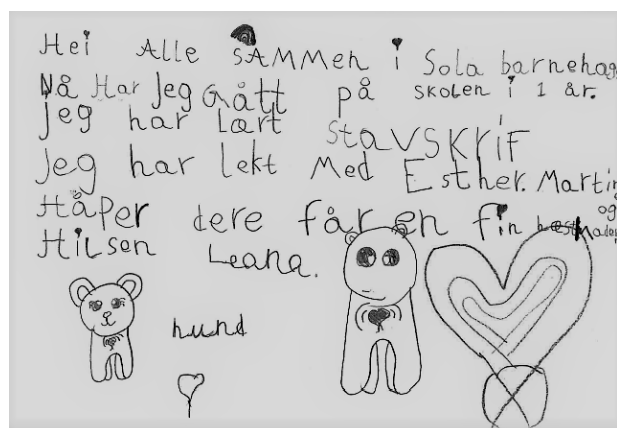 Hei Alle sAMMen i Sola barnehag
Nå Har jeg Gått på skolen i 1 år.
jeg har lært StAVSKRIF
Jeg har lekt Med Esther. Martin
og
Håper dere får en fin
Hilsen Leana.
hund